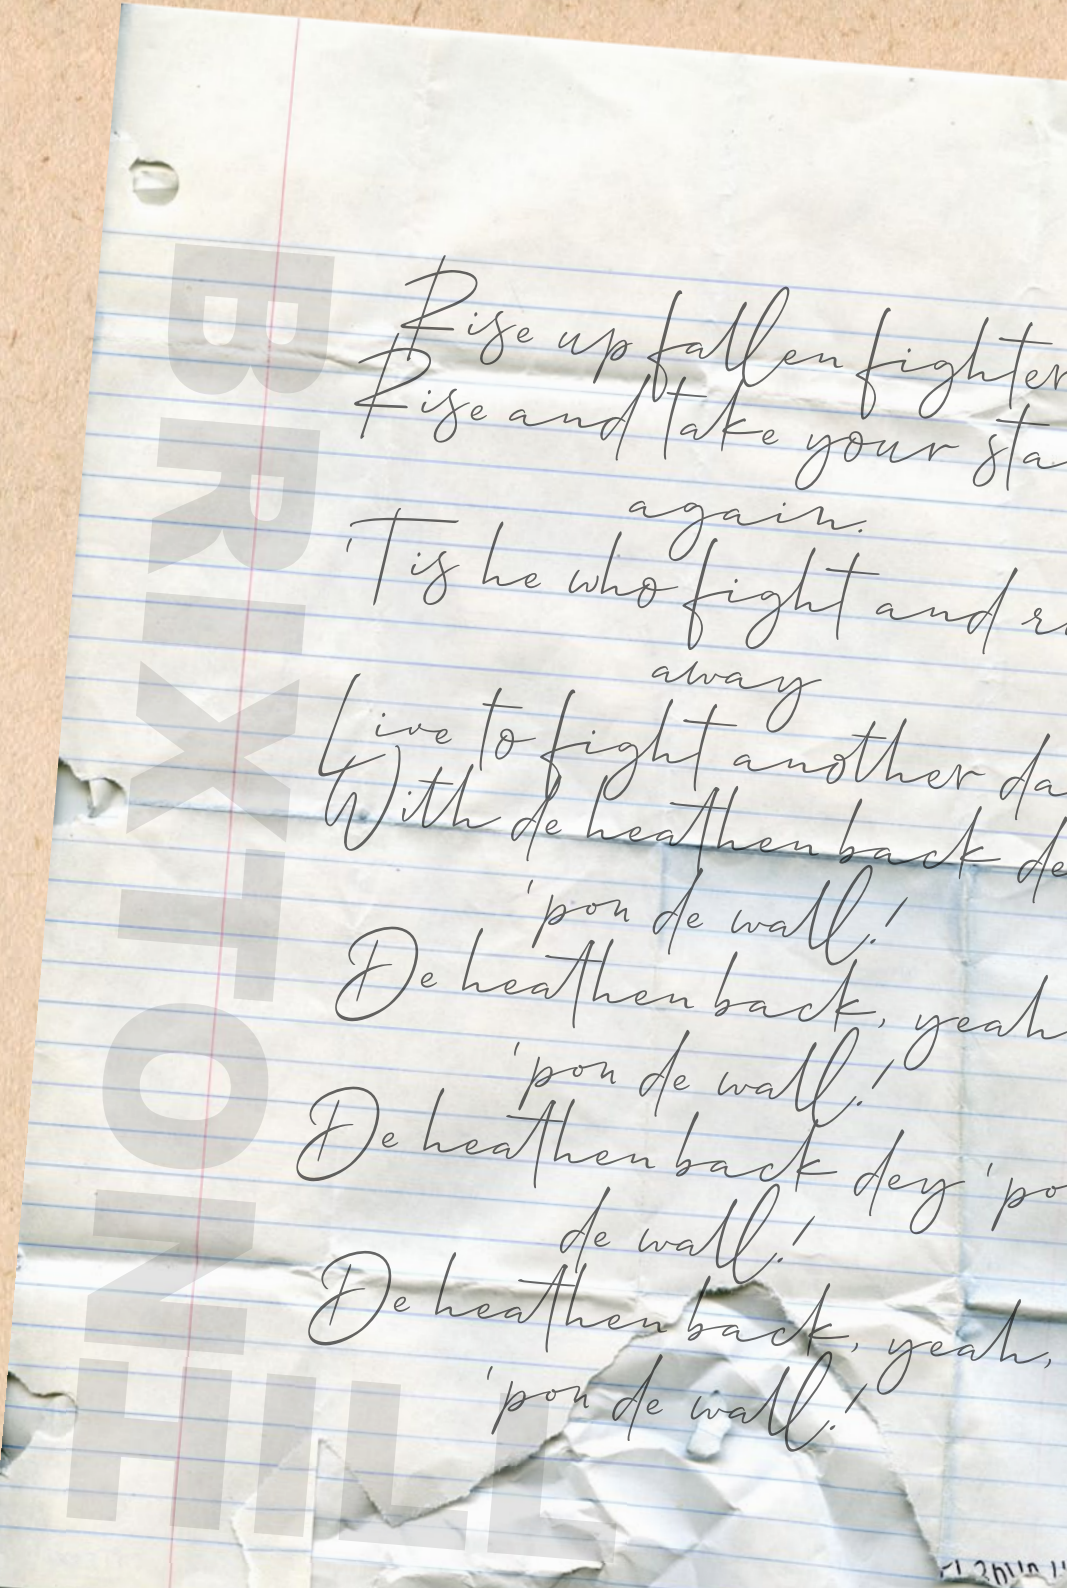 Rise up fallen fighter
Rise and take your sta
again.
'Tis he who fight and r
away
Live to fight another da
With de heathen back de
'pon de wall!
De heathen back, yeah
'pon de wall!
De heathen back dey 'po
de wall!
De heathen back, yeah,
'pon de wall!
BRIXTON